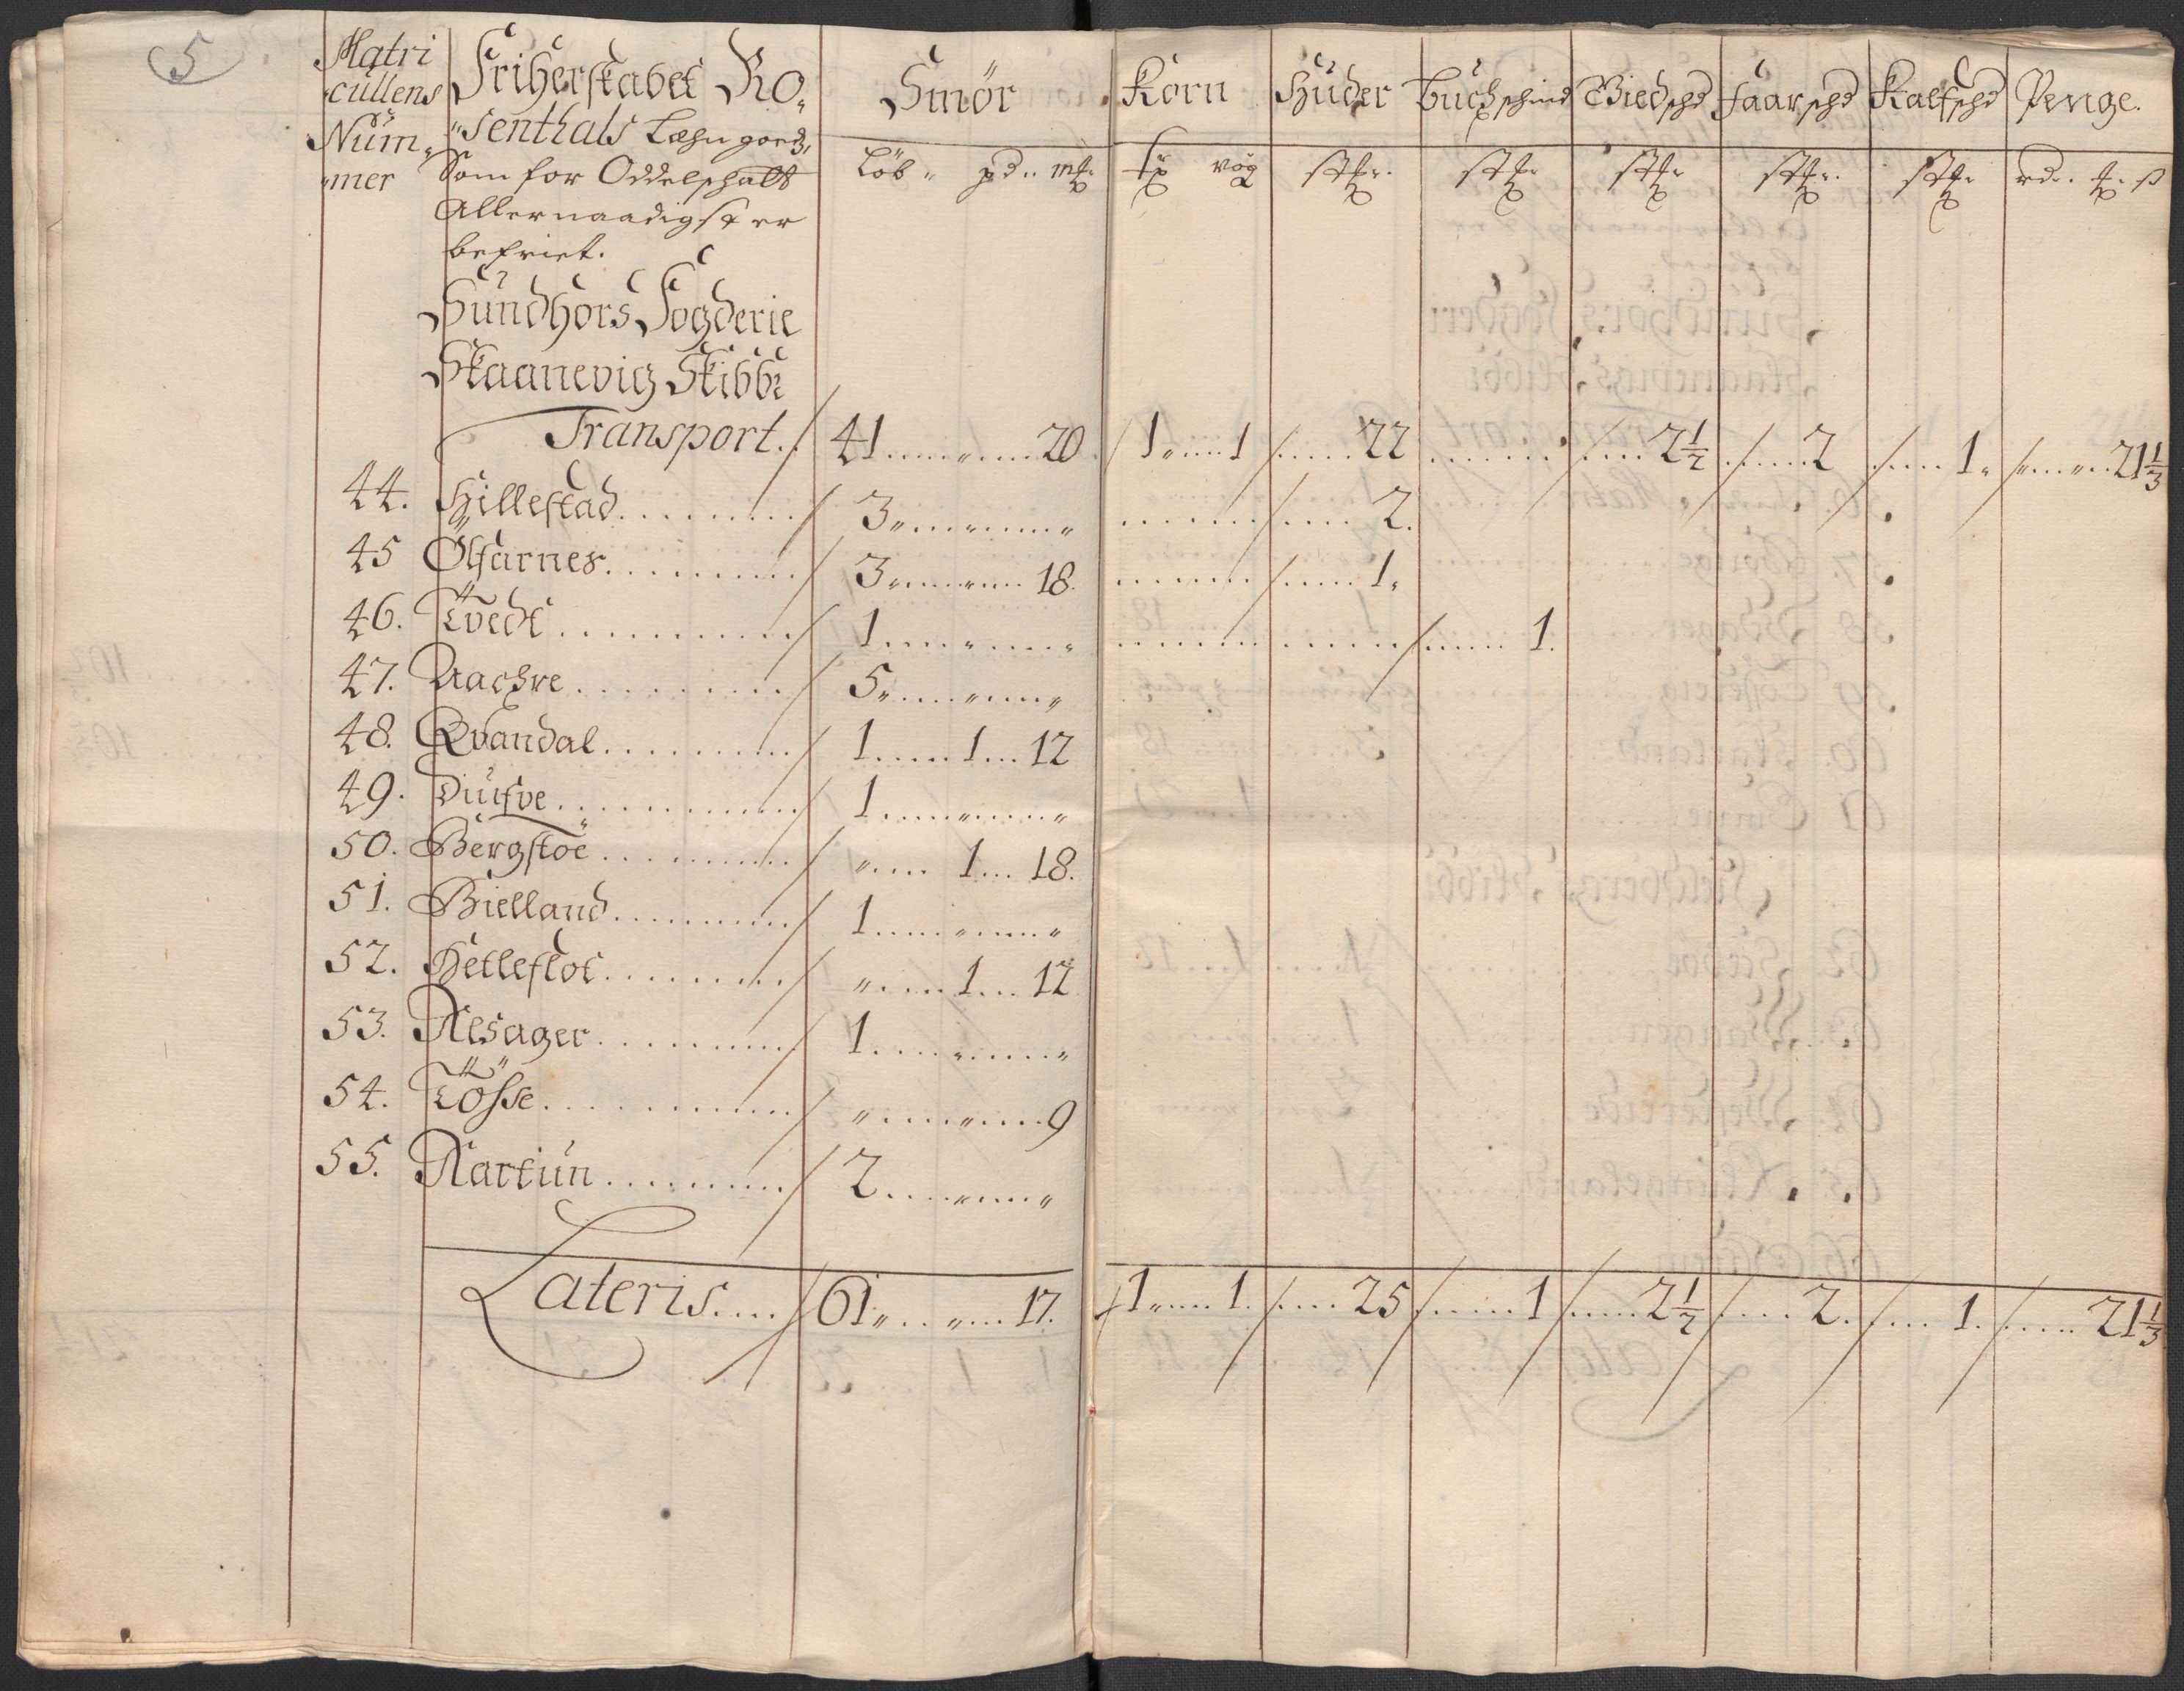 5
Matri
cullens
Num
mer
Friherskabet Ro
senthals Læhn goeds,
Som for Oddelschatt
Allernaadigst er
befriet.
Sundhors Fogderie
Skaanevig Skibbr
Smör Korn Huder Buchschind Giedschd Faarschd Kalfschd Penge.
Löb pd mk vög rd
Transport 41 20 1 1 22 2½ 2 1 21⅓
44. Hillestad 3 2.
45 Ølfarnes 3 18. 1
46. Tvedt 1 1.
47. Aachre 5
48. Qvandal 1 1 12
49. Diufve 1
50. Bergstöe 1 18.
51. Bielland 1
52. Hetleflot 1 12
53. Alsager 1
54. Tösse 9
55. Nartun 2
Lateris 61 17. 1 1. 25 1 2½ 2. 1. 21⅓